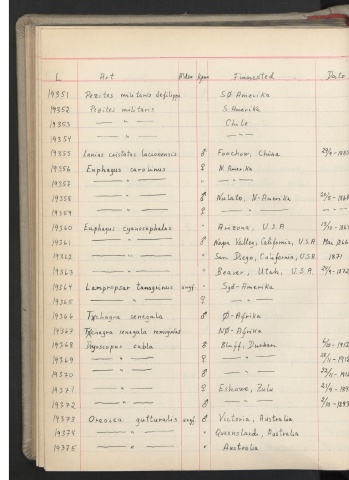 L Art Alder Kjønn Finnested Dato
19351 Pezites militaris defilippi SØ Amerika
19352 Pezites militaris S. Amerika
19353 — " — Chile
19354 — " — — " —
19355 Lanius cristatus lucionensis ♂ Foochow, China
19356 Euphagus carolinus ♀ N. Amerika
19357 — " — " — " —
19358 — " — ♂ Nulato, N-Amerika
19359 — " — ♀ — " —
19360 Euphagus cyanocephalus " Arizona, U.S.A
19361 — " — ♂ Napa Valley, California, U.S.A. Mai
19362 — " — " San Diego, California, U.S.A. 1871
19363 — " — " Beaver, Utah, U.S.A.
19364 Lampropsar tanagrinus ungf. " Syd-Amerika
19365 — " — ♀ — " —
19366 Tschagra senegala ♂ Ø-Afrika
19367 Tschagra senegala NØ-Afrika
19368 Dryoscopus cubla ♂ Bluff, Durban
19369 — " — ♀ — " —
19370 — " — ♂ — " —
19371 — " — ♀ Eshowe, Zulu
19372 — " — ♂ — " —
19373 Oreoica gutturalis ungf. ♂ Victoria, Australia
19374 — " — " Queensland, Australia
19375 — " — " Australia